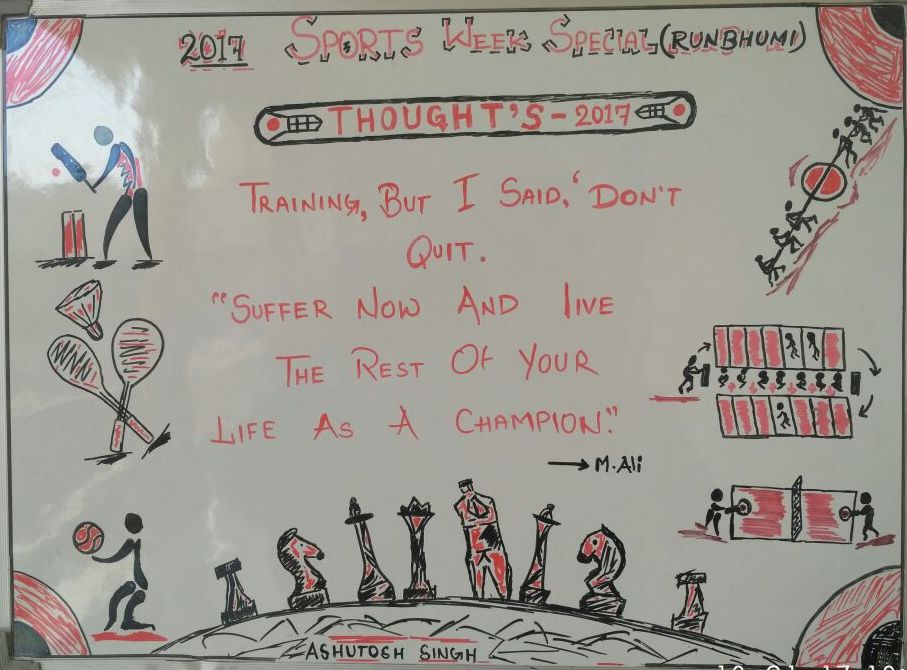 2017 SPORTS WEEK SPECIAL (RUNBHUMI)
THOUGHT'S - 2017
TRAINING, BUT I SAID, 'DON'T
QUIT.
"SUFFER NOW AND lIVE
THE REST OF YOUR
LIFE AS A CHAMPION."
→ M.Ali
ASHUTOSH SINGH